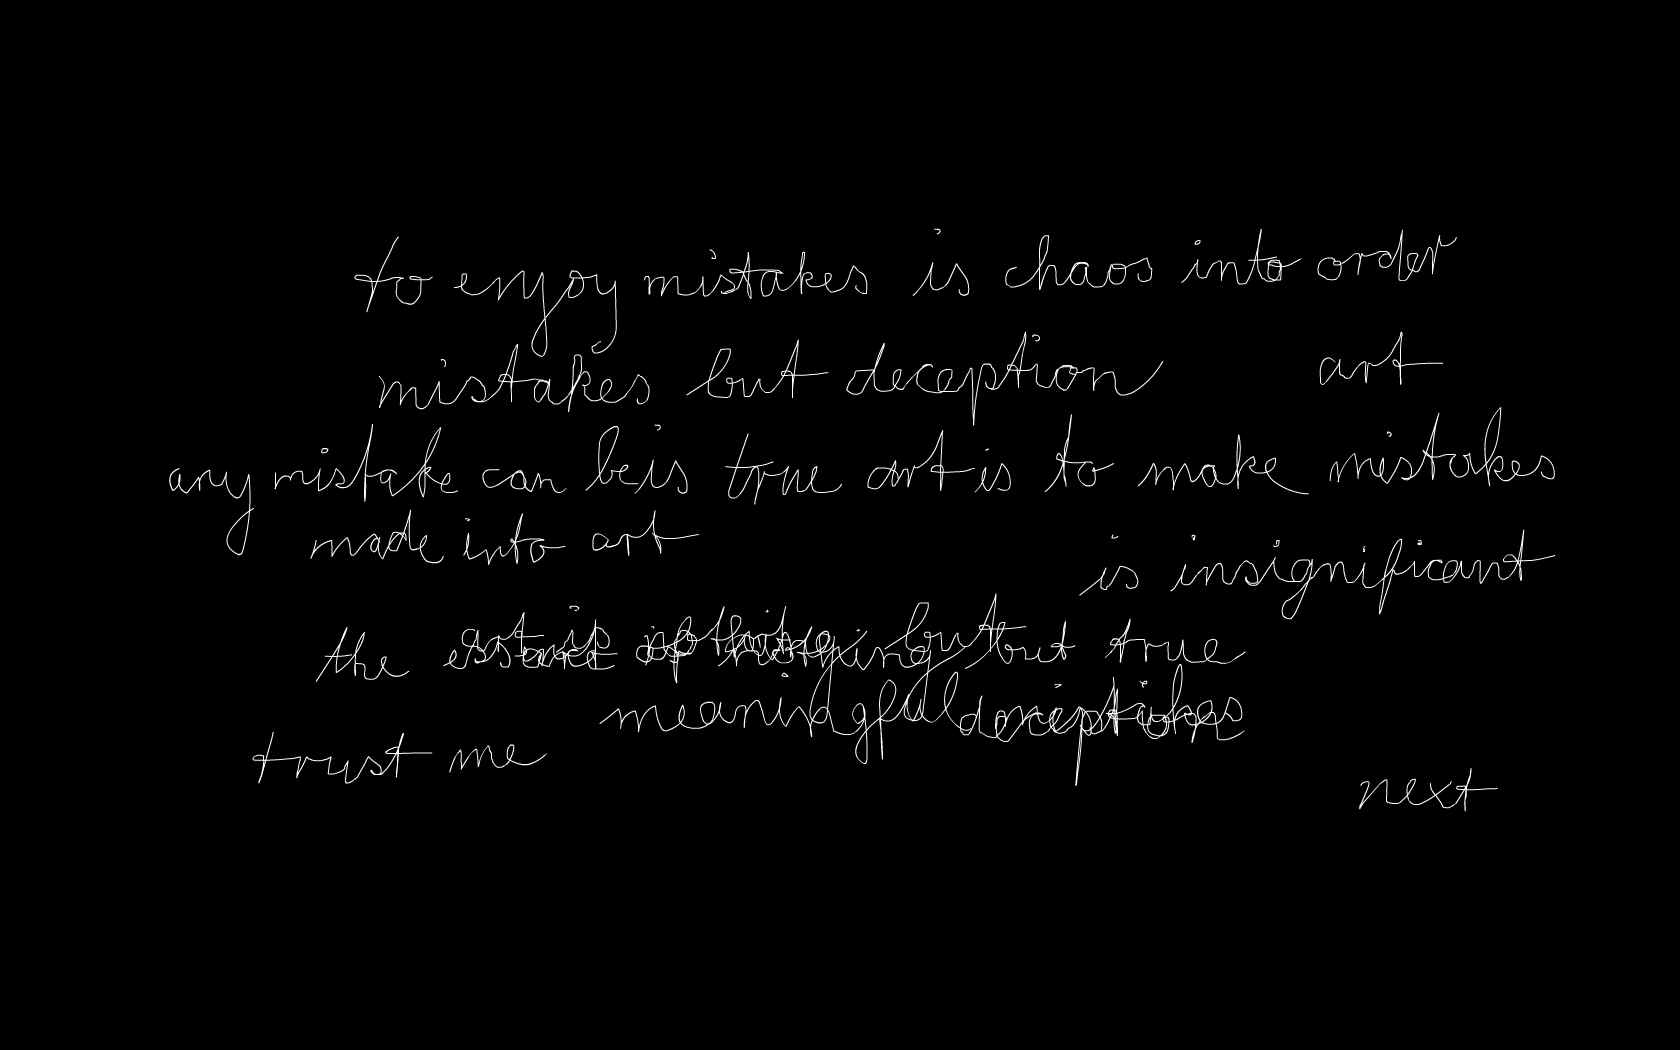 to enjoy mistakes is chaos into order
mistakes but deception art
any mistake can be is true art is to make mistakes
made into art
is insignificant
the art is nothing but but true
meaningful
trust me
next